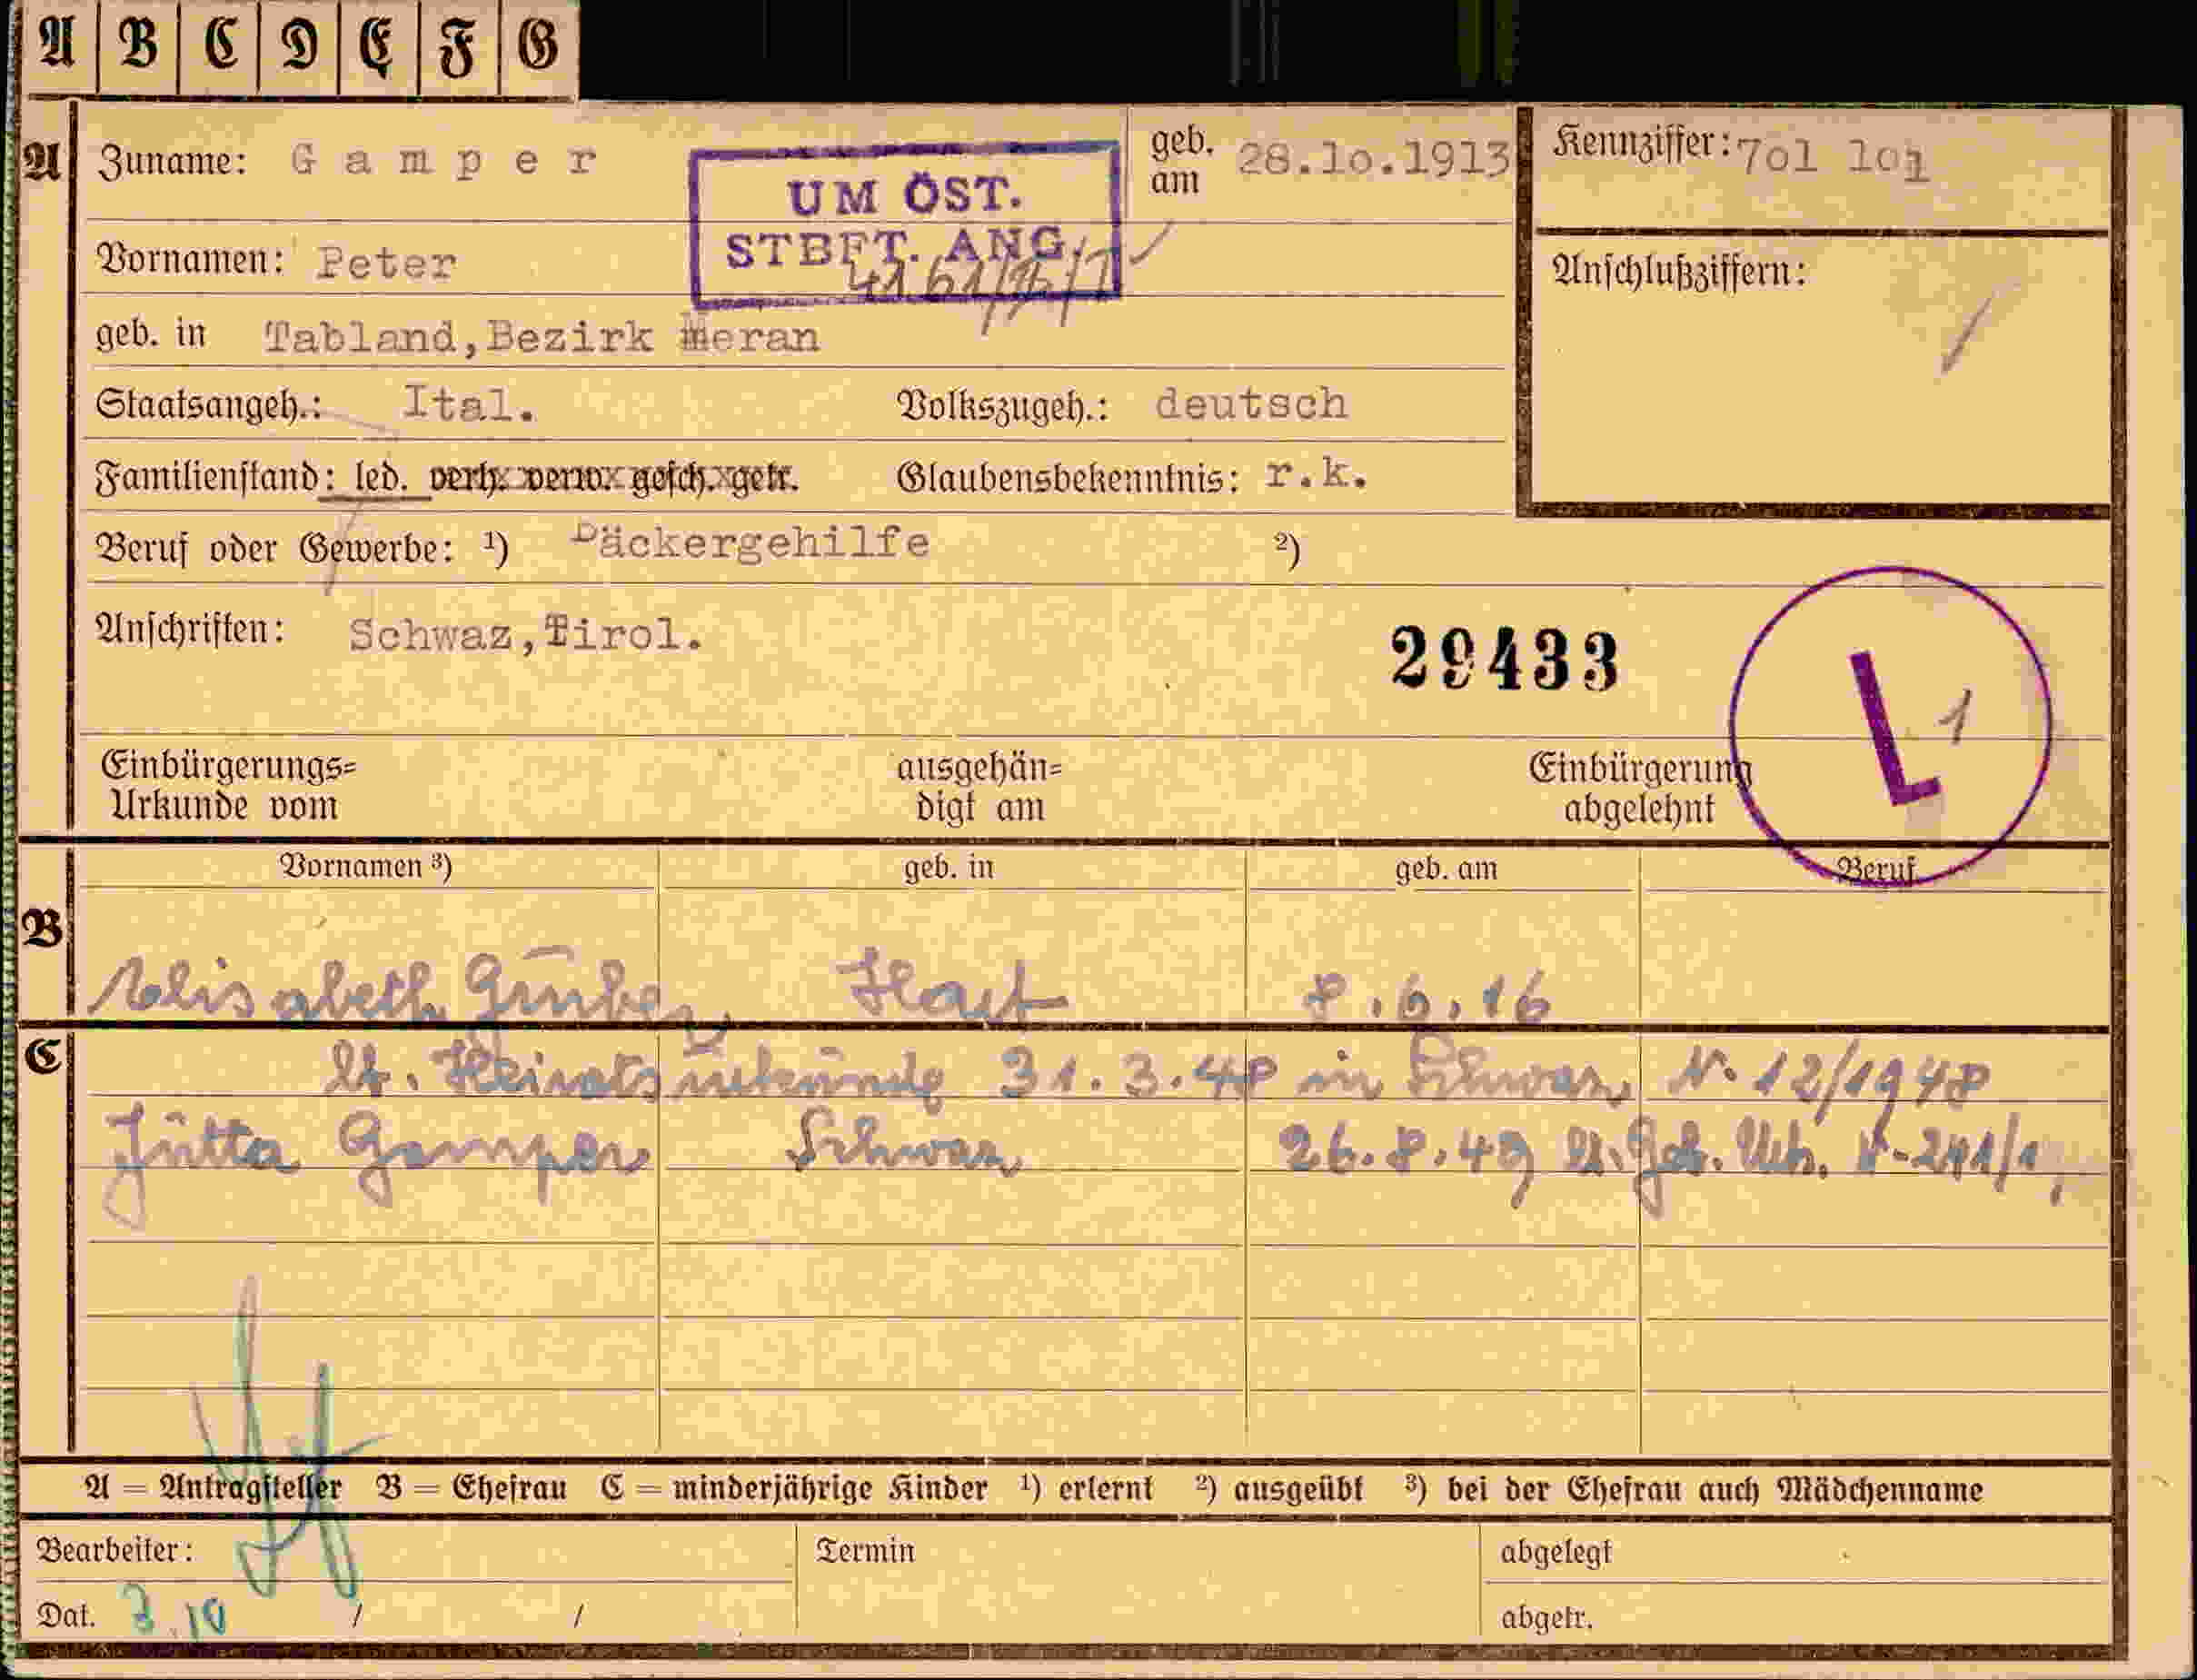 A B C D E F G
A Zuname: Gamper geb. am 28.lo.1913 Kennziffer: 7ol lo1
UM ÖST.
STBFT. ANG.
Vornamen: Peter
Anschlußziffern:
geb. in Tabland, Bezirk Meran
Staatsangeh.: Ital. Volkszugeh.: deutsch
Familienstand: led. verh. verw. gesch. getr. Glaubensbekenntnis: r.k.
Beruf oder Gewerbe: ¹) Bäckergehilfe ²)
Anschriften: Schwaz, Tirol.
29433
L 1
Einbürgerungs= ausgehän= Einbürgerung
Urkunde vom digt am abgelehnt
Vornamen ³) geb. in geb. am Beruf
B
Elisabeth Gruber Hart 8.6.16
C
lt. Heiratsurkunde 31.3.48 in Schwaz N. 12/1948
Jutta Gamper Schwaz 26.8.49 lt. Geb. Urk.
A = Antragsteller B = Ehefrau C = minderjährige Kinder ¹) erlernt ²) ausgeübt ³) bei der Ehefrau auch Mädchenname
Bearbeiter: Termin abgelegt
Dat. 3.10 / / abgetr.